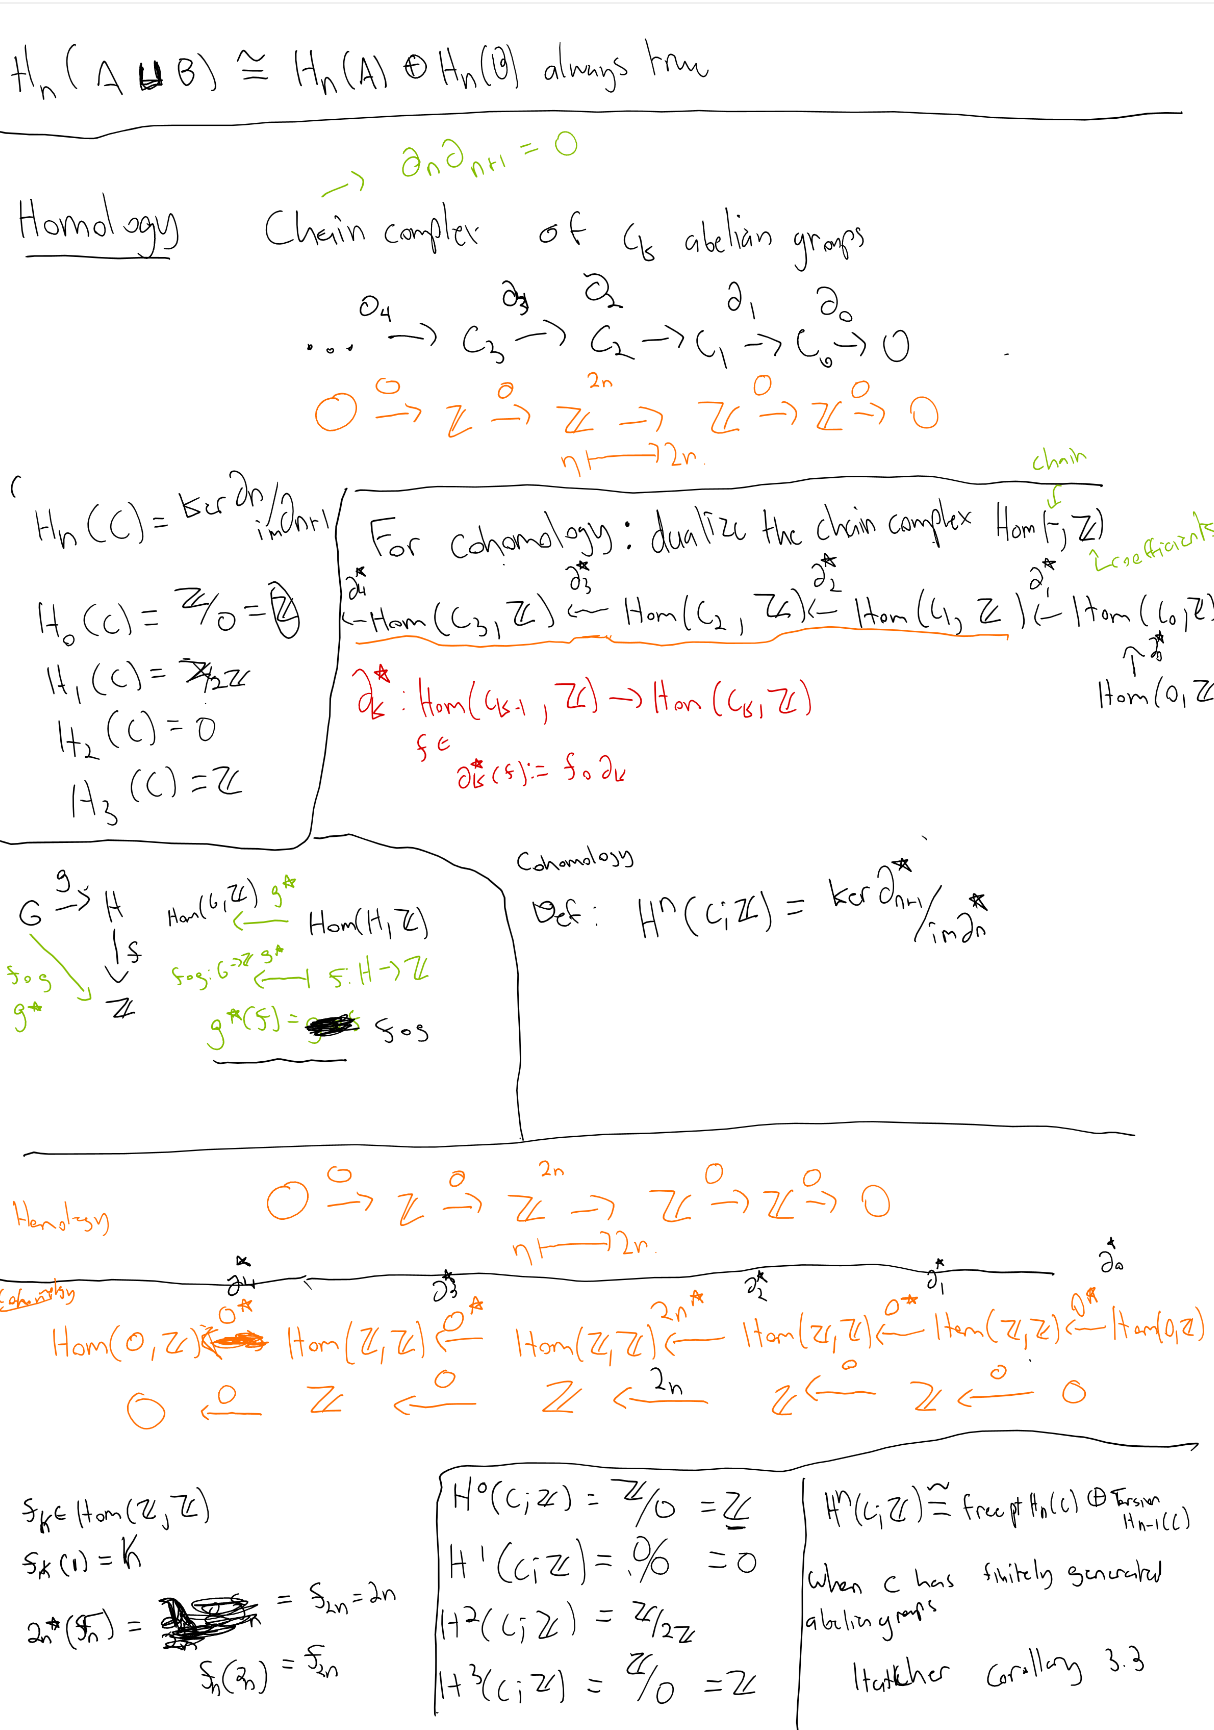 Hₙ(A ⊔ B) ≅ Hₙ(A) ⊕ Hₙ(B) always true
→ ∂ₙ∂ₙ₊₁ = 0
Homology Chain complex of Cₖ abelian groups
∂₄ ∂₃ ∂₂ ∂₁ ∂₀
... → C₃ → C₂ → C₁ → C₀ → 0
0 0 2n 0 0
0 → ℤ → ℤ → ℤ → ℤ → 0
n ↦ 2n.
Hₙ(C) = ker ∂ₙ / im ∂ₙ₊₁
H₀(C) = ℤ/0 = ℤ
H₁(C) = ℤ/2ℤ
H₂(C) = 0
H₃(C) = ℤ
chain
For cohomology: dualize the chain complex Hom(-, ℤ)
↑ coefficients
∂₄* ∂₃* ∂₂* ∂₁*
← Hom(C₃, ℤ) ← Hom(C₂, ℤ) ← Hom(C₁, ℤ) ← Hom(C₀, ℤ)
↑ ∂₀*
Hom(0, ℤ
∂ₖ* : Hom(Cₖ₋₁, ℤ) → Hom(Cₖ, ℤ)
f ∈
∂ₖ*(f) := f ∘ ∂ₖ
G →g H
↓ f
f∘g
g*
ℤ
Hom(G, ℤ) g* ← Hom(H, ℤ)
f∘g: G → ℤ g* ↤ f: H → ℤ
g*(f) = f∘g
Cohomology
Def: Hⁿ(C; ℤ) = ker ∂ₙ₊₁* / im ∂ₙ*
0 0 2n 0 0
Homology 0 → ℤ → ℤ → ℤ → ℤ → 0
n ↦ 2n.
∂₄* ∂₃* ∂₂* ∂₁* ∂₀*
0* 0* 2n* 0* 0*
Hom(0, ℤ) ← Hom(ℤ, ℤ) ← Hom(ℤ, ℤ) ← Hom(ℤ, ℤ) ← Hom(ℤ, ℤ) ← Hom(0, ℤ)
0 0 2n 0 0
0 ← ℤ ← ℤ ← ℤ ← ℤ ← 0
fₖ ∈ Hom(ℤ, ℤ)
fₖ(1) = k
2n*(fₙ) = = f₂ₙ = 2n
fₙ(2n) = f₂ₙ
H⁰(C; ℤ) = ℤ/0 = ℤ
H¹(C; ℤ) = 0/0 = 0
H²(C; ℤ) = ℤ/2ℤ
H³(C; ℤ) = ℤ/0 = ℤ
Hⁿ(C; ℤ) ≅ free pt Hₙ(C) ⊕ Torsion Hₙ₋₁(C)
when C has finitely generated
abelian groups
Hatcher Corollary 3.3